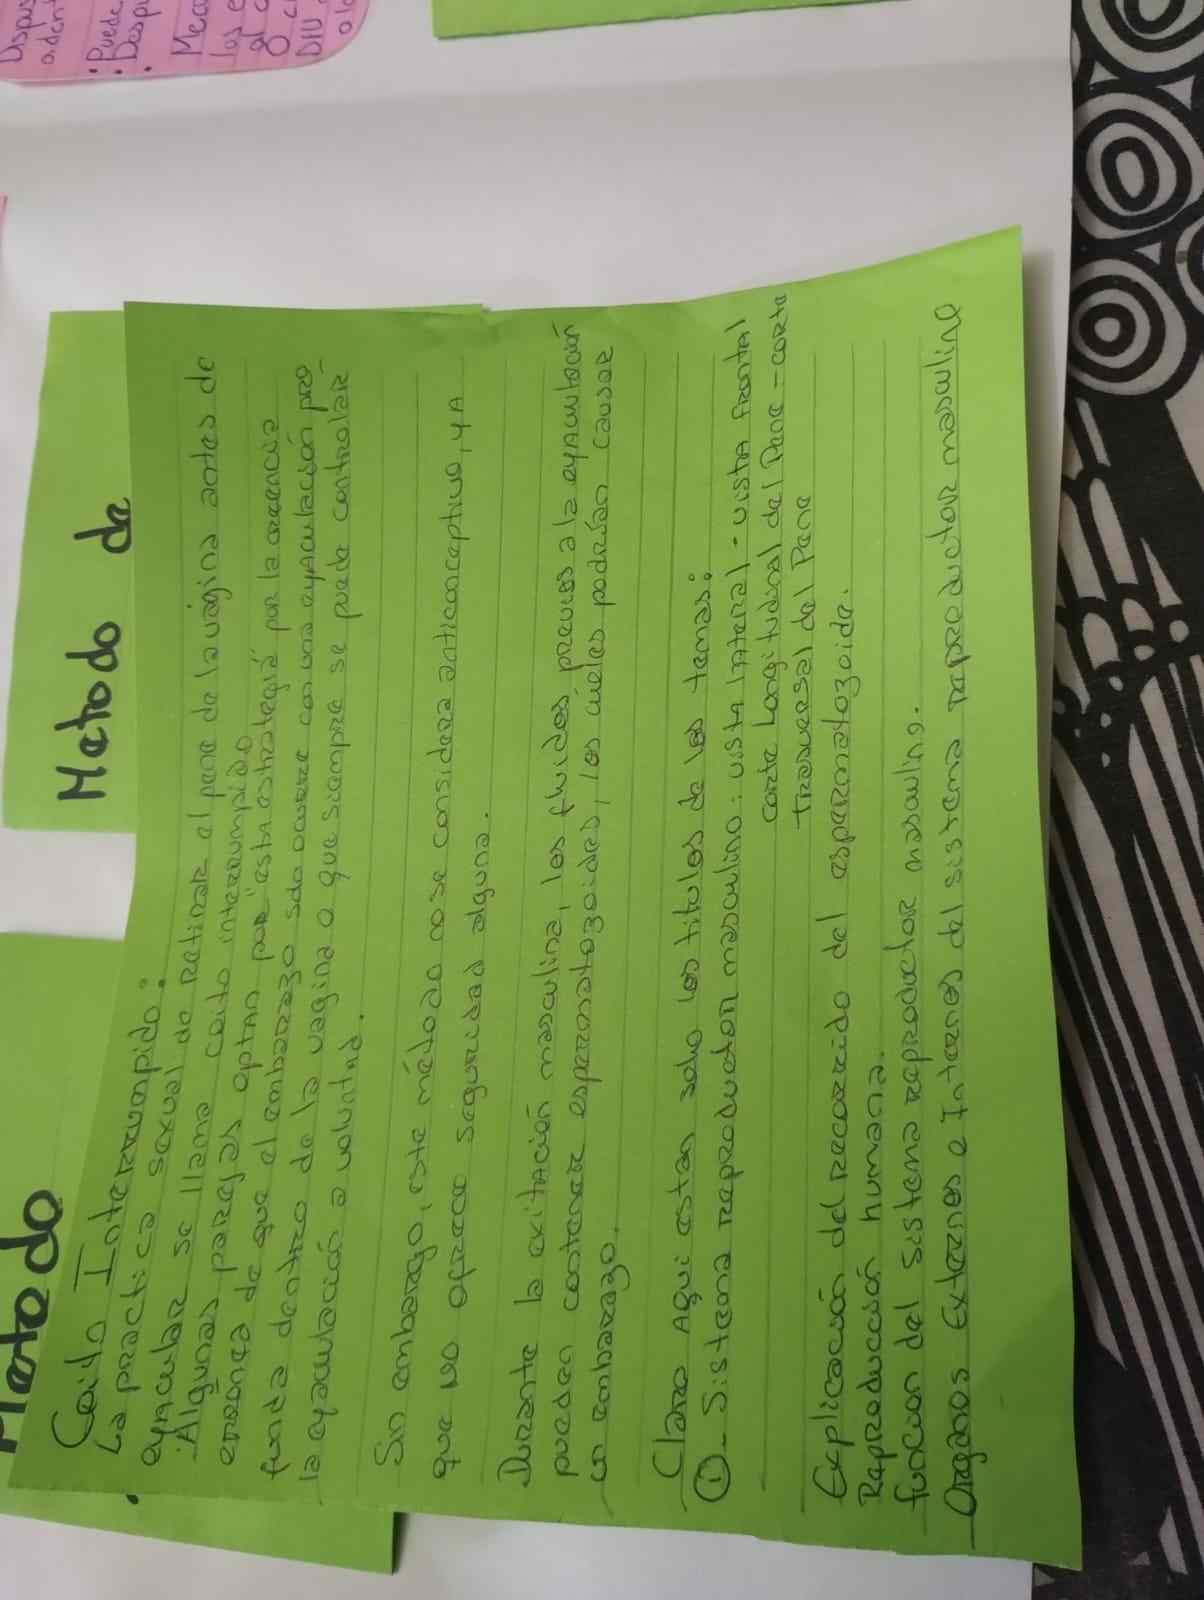 Dispos
a.dent
• Puede
• Despu
Meca
los e
al c
O c
DIU
Metodo de
Metodo
Coito Interrumpido:
La practica sexual de retirar el pene de la vagina antes de
eyacular se llama coito interrumpido
. Algunas parejas optan por "esta estrategia" por la creencia
erronea de que el embarazo solo ocurre con una eyaculación pro
funda dentro de la vagina o que siempre se puede controlar
la eyaculación a voluntad.
Sin embargo, este método no se considera anticonceptivo, ya
que no ofrece seguridad alguna.
Durante la exitación masculina, los fluidos previos a la eyaculación
pueden contener espermatozoides, los cueles podrían causar
un embarazo.
Claro Aqui estan solo los titulos de los temas:
①- Sistema reproductor masculino: vista lateral - vista frontal
corte longitudinal del Pene - corte
trasversal del Pene
Explicación del recorrido del espermatozoide.
Reproducción humana.
función del sistema reproductor masculino.
Organos Externos e Internos del sistema reproductor masculine